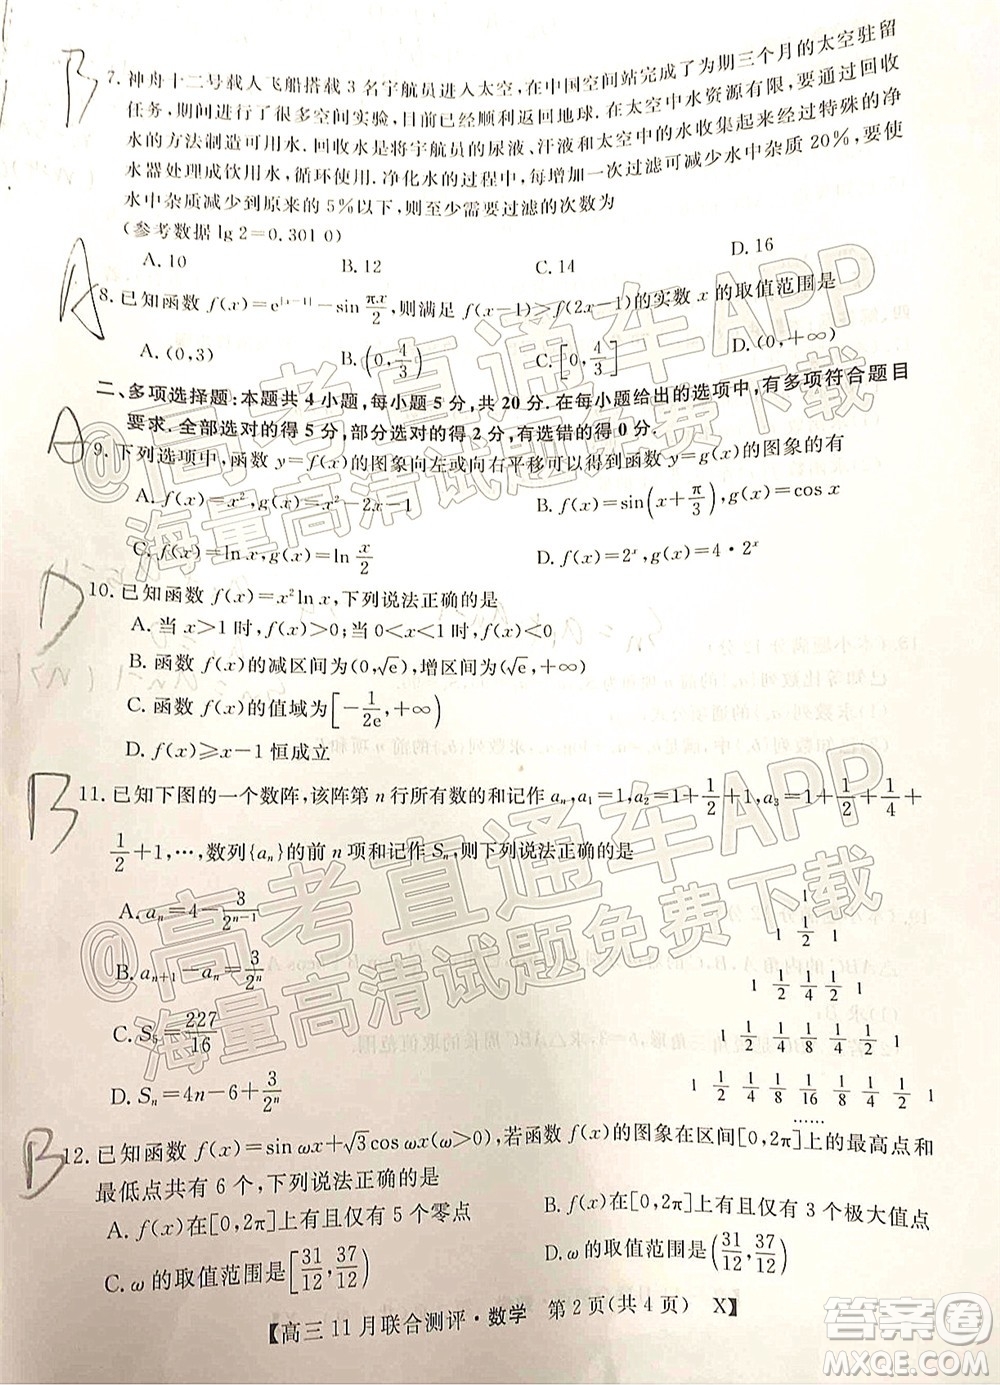 B
7. 神舟十二号载人飞船搭载 3 名宇航员进入太空,在中国空间站完成了为期三个月的太空驻留
任务,期间进行了很多空间实验,目前已经顺利返回地球.在太空中水资源有限,要通过回收
水的方法制造可用水.回收水是将宇航员的尿液、汗液和太空中的水收集起来经过特殊的净
水器处理成饮用水,循环使用.净化水的过程中,每增加一次过滤可减少水中杂质 20%,要使
水中杂质减少到原来的 5%以下,则至少需要过滤的次数为
(参考数据 lg 2=0.301 0)
A. 10 B. 12 C. 14 D. 16
A
8. 已知函数 f(x)=e^{|x-1|}-sin\frac{πx}{2},则满足 f(x-1)>f(2x-1)的实数 x 的取值范围是
A. (0,3) B. (0,\frac{4}{3}) C. [0,\frac{4}{3}] D. (0,+∞)
二、多项选择题:本题共 4 小题,每小题 5 分,共 20 分.在每小题给出的选项中,有多项符合题目
要求.全部选对的得 5 分,部分选对的得 2 分,有选错的得 0 分.
A
9. 下列选项中,函数 y=f(x)的图象向左或向右平移可以得到函数 y=g(x)的图象的有
A. f(x)=x²,g(x)=x²-2x-1 B. f(x)=sin(x+\frac{π}{3}),g(x)=cos x
C. f(x)=ln x,g(x)=ln\frac{x}{2} D. f(x)=2^x,g(x)=4·2^x
D
10. 已知函数 f(x)=x²ln x,下列说法正确的是
A. 当 x>1 时,f(x)>0;当 0<x<1 时,f(x)<0
B. 函数 f(x)的减区间为(0,√e),增区间为(√e,+∞)
C. 函数 f(x)的值域为[-\frac{1}{2e},+∞)
D. f(x)≥x-1 恒成立
B
11. 已知下图的一个数阵,该阵第 n 行所有数的和记作 a_n,a_1=1,a_2=1+\frac{1}{2}+1,a_3=1+\frac{1}{2}+\frac{1}{4}+
\frac{1}{2}+1,…,数列{a_n}的前 n 项和记作 S_n,则下列说法正确的是
A. a_n=4-\frac{3}{2^{n-1}}
B. a_{n+1}-a_n=\frac{3}{2^n}
C. S_5=\frac{227}{16}
D. S_n=4n-6+\frac{3}{2^n}
1
1 \frac{1}{2} 1
1 \frac{1}{2} \frac{1}{4} \frac{1}{2} 1
1 \frac{1}{2} \frac{1}{4} \frac{1}{8} \frac{1}{4} \frac{1}{2} 1
1 \frac{1}{2} \frac{1}{4} \frac{1}{8} \frac{1}{16} \frac{1}{8} \frac{1}{4} \frac{1}{2} 1
……
B
12. 已知函数 f(x)=sin ωx+√3cos ωx(ω>0),若函数 f(x)的图象在区间[0,2π]上的最高点和
最低点共有 6 个,下列说法正确的是
A. f(x)在[0,2π]上有且仅有 5 个零点 B. f(x)在[0,2π]上有且仅有 3 个极大值点
C. ω 的取值范围是[\frac{31}{12},\frac{37}{12}) D. ω 的取值范围是(\frac{31}{12},\frac{37}{12})
【高三 11 月联合测评·数学 第 2 页(共 4 页) X】
@高考直通车APP
海量高清试题免费下载
@高考直通车APP
海量高清试题免费下载
答案圈
MXQE.COM